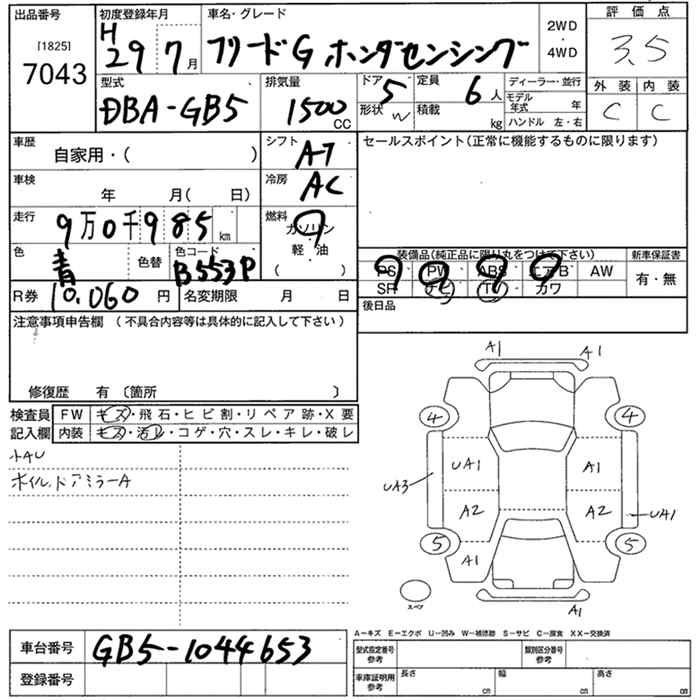 出品番号
[1825]
7043
初度登録年月
H 29 7月
車名・グレード
フリードG ホンダセンシング
2WD
・
4WD
評価点
3.5
外装 内装
C C
型式
DBA-GB5
排気量
1500 CC
ドア 5
形状 W
定員 6人
積載 kg
ディーラー・並行
モデル年式 年
ハンドル 左・右
車歴
自家用・( )
シフト AT
セールスポイント(正常に機能するものに限ります)
車検 年 月( 日)
冷房 AC
走行 9万0千985km
燃料
ガソリン
軽・油
( )
色 青
色替
色コード B553P
装備品(純正品に限り丸をつけて下さい)
PS PW ABS エアB AW
SR ナビ TV カワ
新車保証書
有・無
R券 10,060円
名変期限 月 日
後日品
注意事項申告欄(不具合内容等は具体的に記入して下さい)
修復歴 有〔箇所 〕
検査員記入欄
FW キズ・飛石・ヒビ割・リペア跡・X要
内装 キズ・汚レ・コゲ・穴・スレ・キレ・破レ
小AU
ホイル.ドアミラーA
A1 A1
4 4
UA1 A1
UA3
A2 A2
UA1
5 5
A1
A1
スペア
A−キズ E−エクボ U−凹み W−補修跡 S−サビ C−腐食 XX−交換済
車台番号 GB5-1044653
登録番号
型式指定番号参考
類別区分番号参考
車庫証明用参考
長さ cm
幅 cm
高さ cm